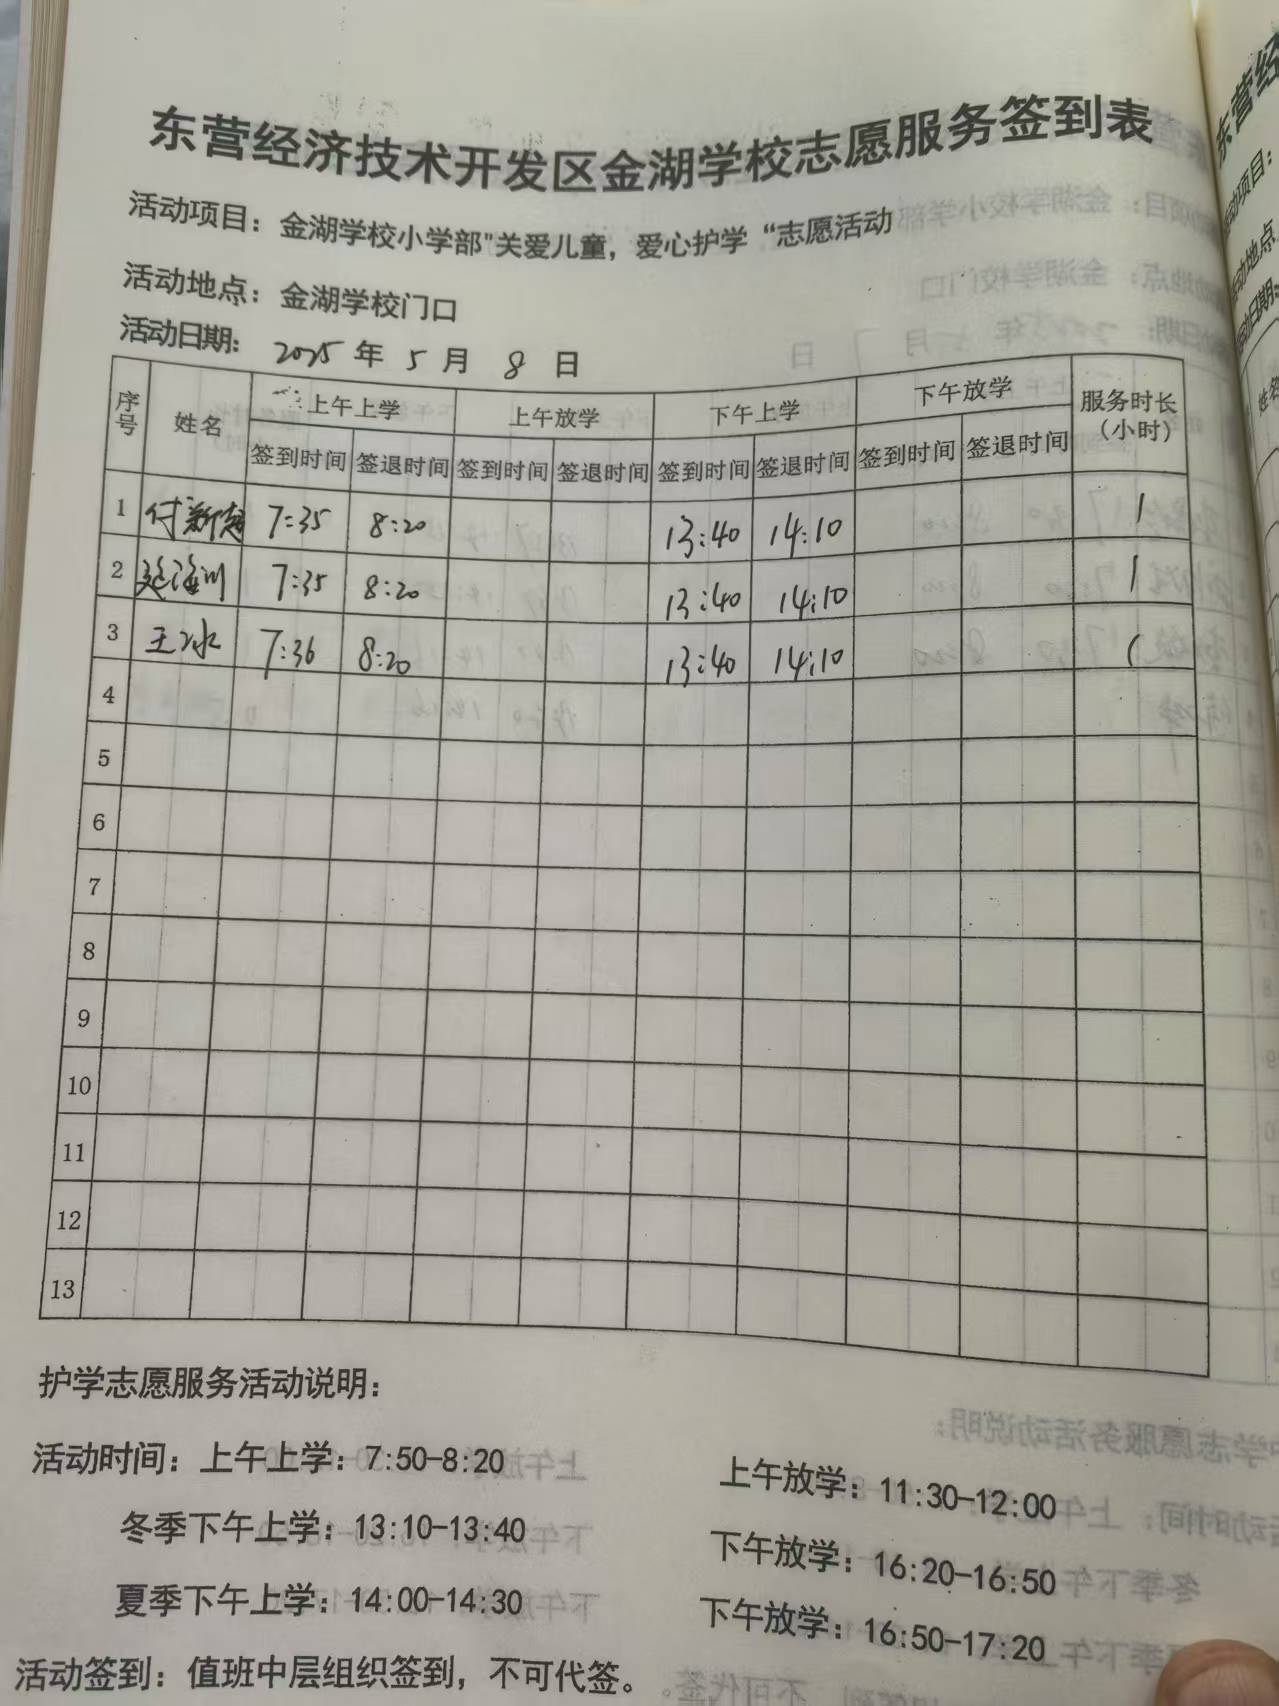 东营经济技术开发区金湖学校志愿服务签到表
活动项目：金湖学校小学部"关爱儿童，爱心护学“志愿活动
活动地点：金湖学校门口
活动日期：2025 年 5 月 8 日
序号 姓名 上午上学 上午放学 下午上学 下午放学 服务时长（小时）
签到时间 签退时间 签到时间 签退时间 签到时间 签退时间 签到时间 签退时间
1 付新超 7:35 8:20 13:40 14:10 1
2 海川 7:35 8:20 13:40 14:10 1
3 王冰 7:36 8:20 13:40 14:10 1
4
5
6
7
8
9
10
11
12
13
护学志愿服务活动说明：
活动时间：上午上学：7:50-8:20 上午放学：11:30-12:00
冬季下午上学：13:10-13:40 下午放学：16:20-16:50
夏季下午上学：14:00-14:30 下午放学：16:50-17:20
活动签到：值班中层组织签到，不可代签。